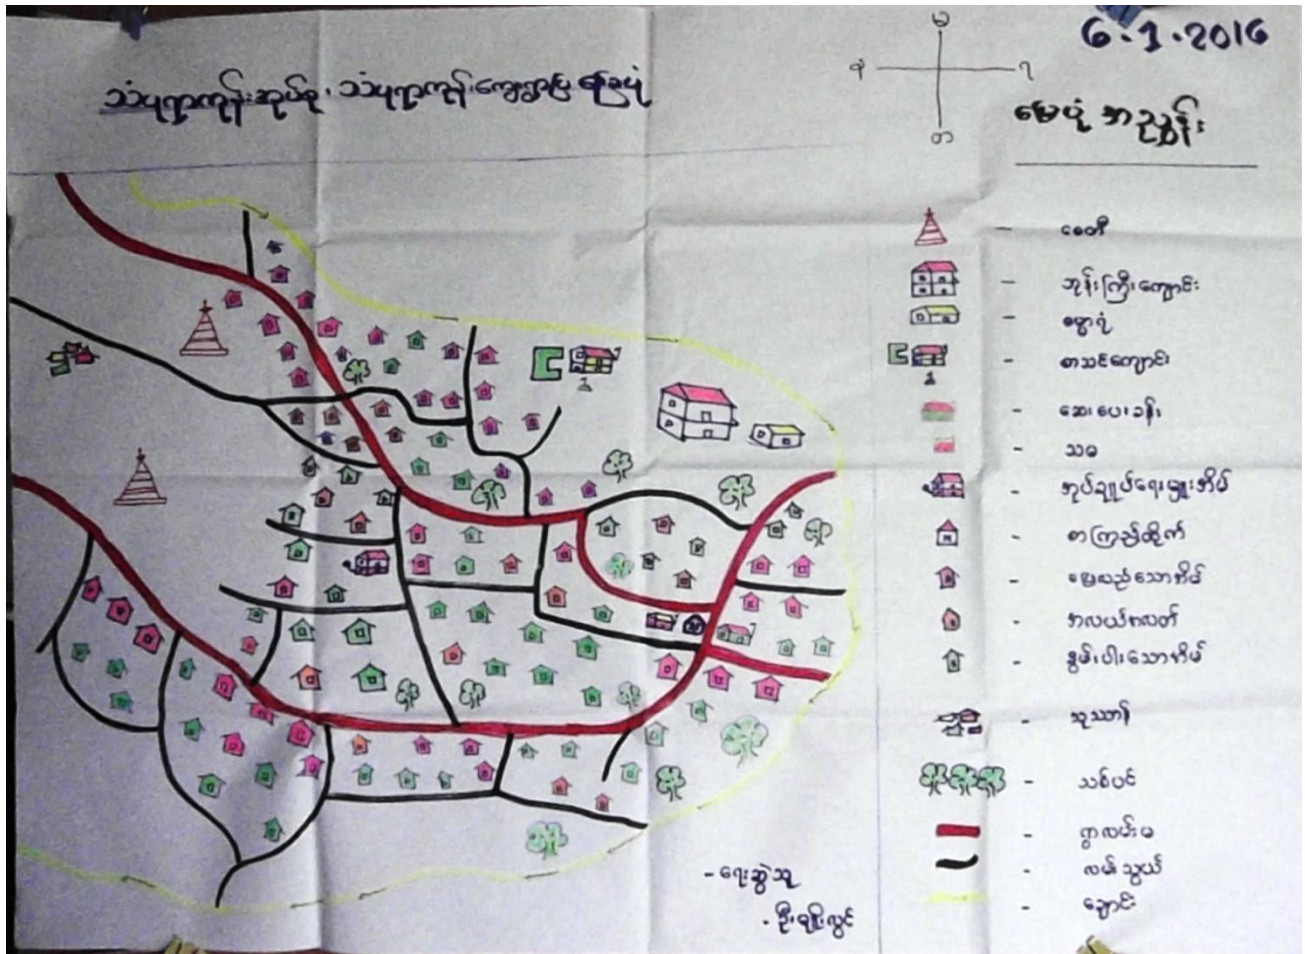 သံပုရာကုန်းအုပ်စု ၊ သံပုရာကုန်းကျေးရွာပြ မြေပုံ
မ
ဖ
ရ
တ
6.1.2016
မြေပုံ အညွှန်း
စေတီ
ဘုန်းကြီးကျောင်း
ဓမ္မာရုံ
စာသင်ကျောင်း
ဆေးပေးခန်း
သမ
အုပ်ချုပ်ရေးမှူးအိမ်
စာကြည့်တိုက်
မြေမဲ့သောအိမ်
အလယ်အလတ်
နွမ်းပါးသောအိမ်
သုဿာန်
သစ်ပင်
ရွာလမ်းမ
လမ်းသွယ်
ချောင်း
- ရေးဆွဲသူ
- ဦးမျိုးလွင်